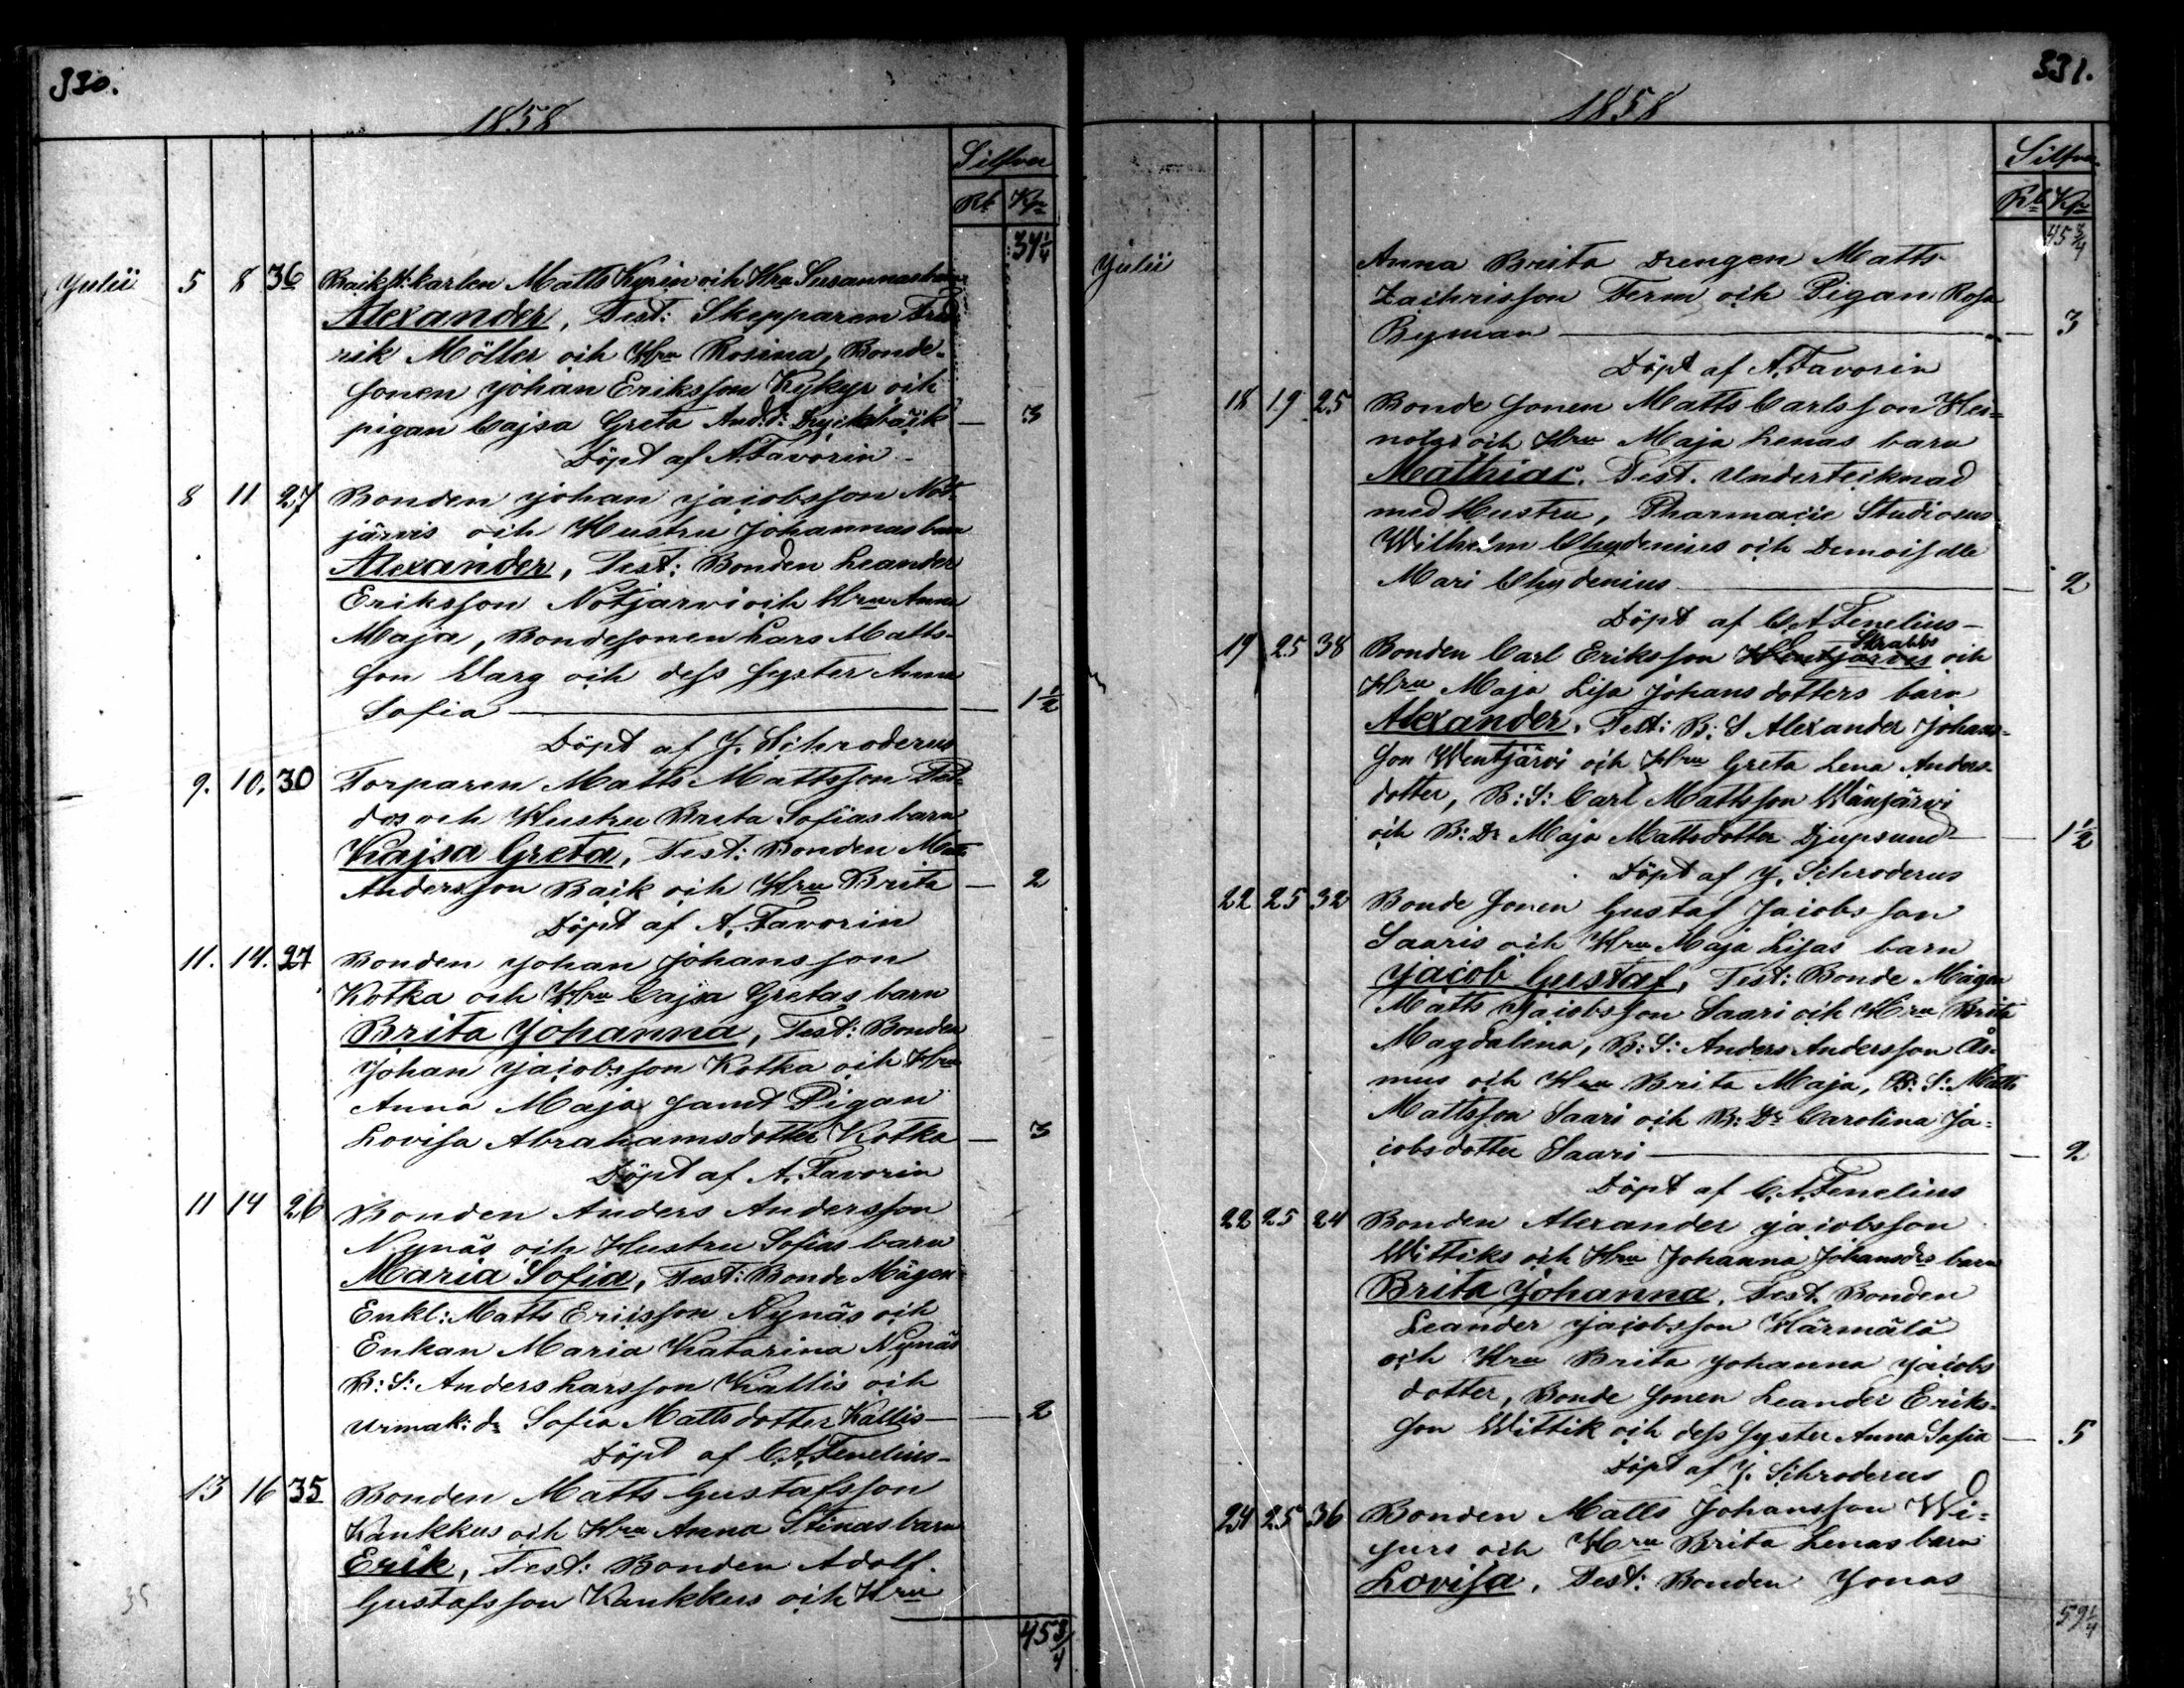 330.
1858
Silfver
Rb Kp
34 1/4
Julii 5 8 36 Matts Kyrin och Hru Susannas barn
Alexander, Test: Skepparen Fred
rik Möller och Hru Rosina, Bonde-
sonen Johan Eriksson Kykyr och
pigan Cajsa Greta And:d: — 3
Döpt af A. Favorin
8 11 27 Bonden Johan Jacobsson Not-
järvis och Hustru Johannas barn
Alexander, Test: Bonden Leander
Eriksson Notjärvi och Hru Anna
Maja, Bondesonen Lars Matts-
son Warg och dess syster Anna
Sofia — 1 1/2
Döpt af J. Schroderus
9. 10. 30 Torparen Matts Mattsson
och Hustru Brita Sofias barn
Kajsa Greta, Test: Bonden Matts
Andersson Baik och Hru Brita — 2
Döpt af A. Favorin
11. 14. 27 Bonden Johan Johansson
Kotka och Hru Cajsa Gretas barn
Brita Johanna, Test: Bonden
Johan Jacobsson Kotka och Hru
Anna Maja samt Pigan
Lovisa Abrahamsdotter Kotka — 3
Döpt af A. Favorin
11 14 26 Bonden Anders Andersson
Nynäs och Hustru Sofias barn
Maria Sofia, Test: Bonde Mågen
Enkl: Matts Ericsson Nynäs och
Enkan Maria Katarina Nynäs
B: S: Anders Larsson Kallis och
Urmak: dr Sofia Mattsdotter Kallis — 2
Döpt af C. A. Fenelius
13 16 35 Bonden Matts Gustafsson
Kankkus och Hru Anna Stinas barn
Erik, Test: Bonden Adolf
Gustafsson Kankkus och Hru
35
45 3/4
331.
1858
Silfver
Rb Kp
45 3/4
Julii Anna Brita Drengen Matts
Zachrisson Term och Pigan Rosa
Byman — 3
Döpt af A. Favorin
18 19 25 Bonde Sonen Matts Carlsson Hei-
och Hru Maja Lenas barn
Mathias. Test. Underteiknad
med Hustru, Pharmacie Studiosus
Wilhelm Chydenius och Demoiselle
Mari Chydenius — 2
Döpt af C. A. Fenelius
Strabbs
19 25 38 Bonden Carl Eriksson Wentjärvis och
Hru Maja Lisa Johansdotters barn
Alexander. Test: B: S Alexander Johans-
son Wentjärvi och Hru Greta Lena Anders-
dotter, B: S: Carl Mattsson Wänjärvi
och B: Dr Maja Mattsdotter Djupsund — 1 1/2
Döpt af J. Schroderus
22 25 32 Bonde Sonen Gustaf Jacobsson
Saaris och Hru Maja Lisas barn
Jacob Gustaf, Test: Bonde Mågen
Matts Jacobsson Saari och Hru Brita
Magdalena, B: S: Anders Andersson Ås-
mus och Hru Brita Maja, B: S: Matts
Mattsson Saari och B: Dr Carolina Ja-
cobsdotter Saari — 2
Döpt af C. A. Fenelius
22 25 24 Bonden Alexander Jacobsson
Wittiks och Hru Johanna Johansdrs barn
Brita Johanna, Test. Bonden
Leander Jacobsson Härmälä
och Hru Brita Johanna Jacobs
dotter, Bonde Sonen Leander Eriks-
son Wittik och dess syster Anna Sofia — 5
Döpt af J. Schroderus
24 25 36 Bonden Matts Johansson Wi-
och Hru Brita Lenas barn
Lovisa, Test: Bonden Jonas
59 1/4